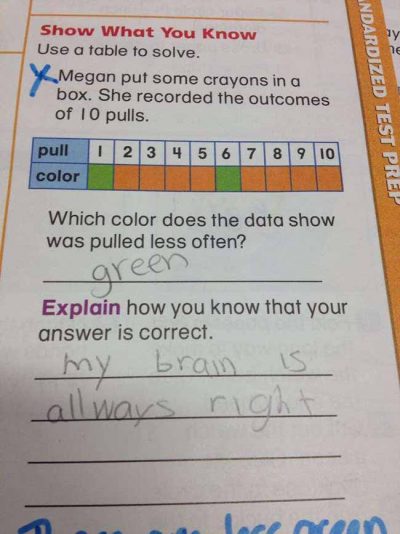 Show What You Know
Use a table to solve.
Megan put some crayons in a
box. She recorded the outcomes
of 10 pulls.
pull 1 2 3 4 5 6 7 8 9 10
color
Which color does the data show
was pulled less often?
green
Explain how you know that your
answer is correct.
my brain is
allways right
less green
NDARDIZED TEST PREP